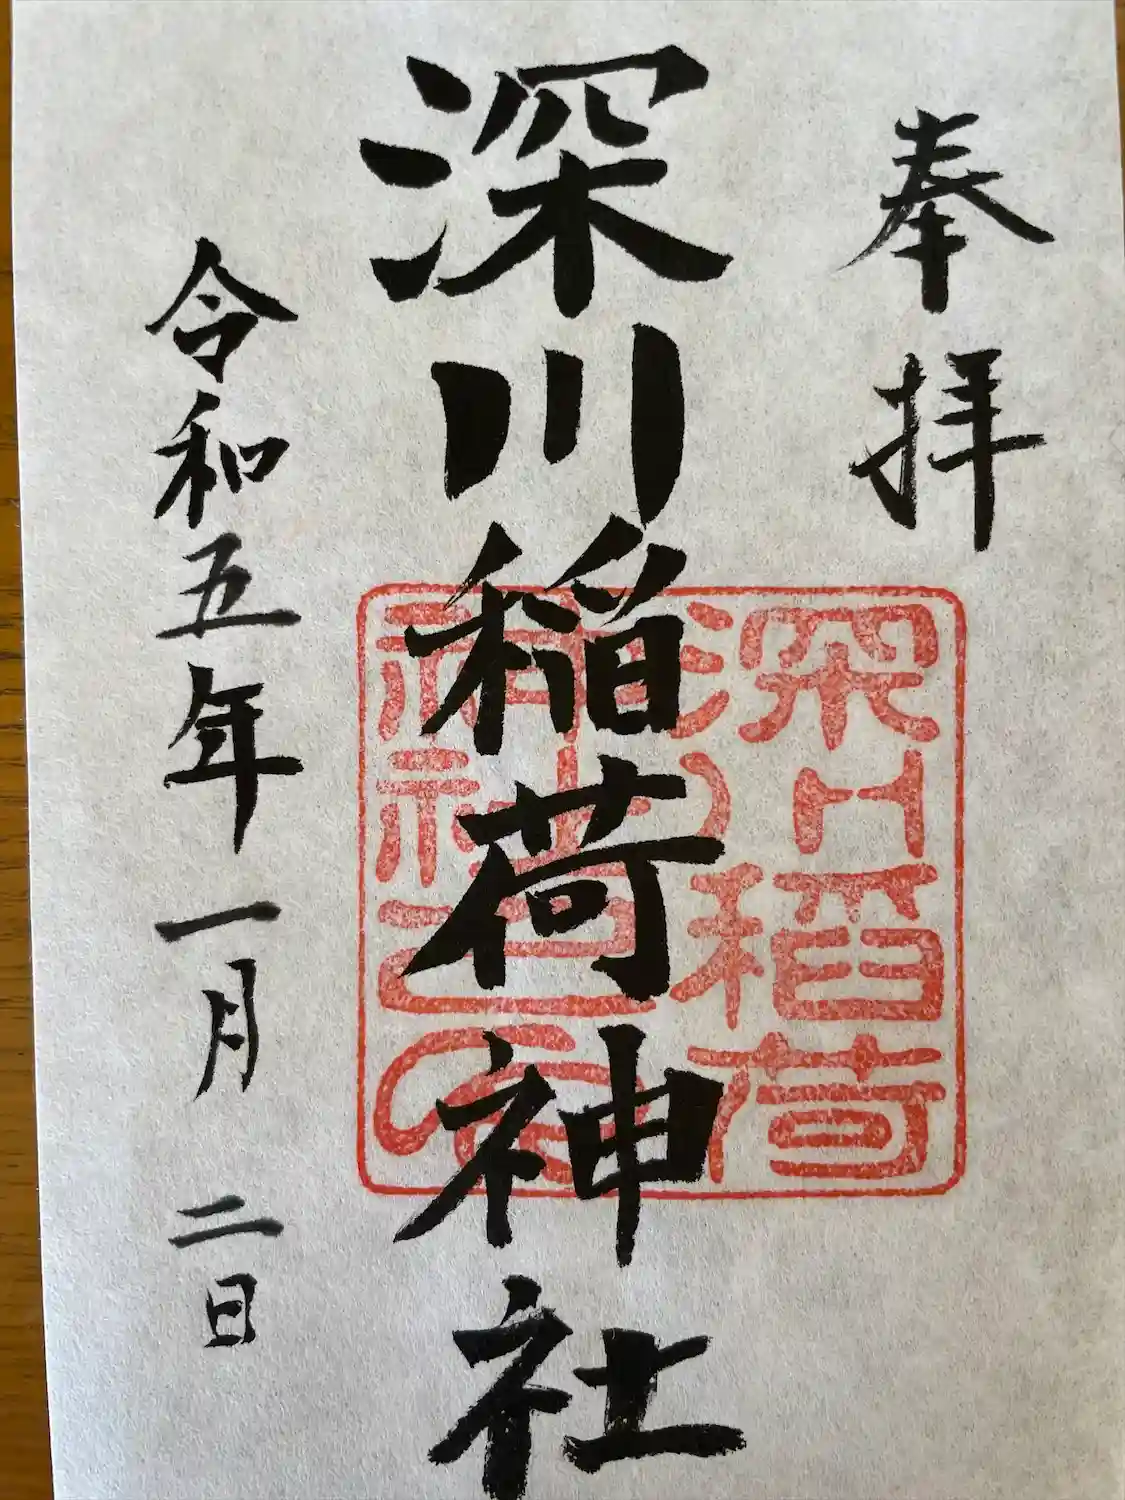 奉拝
深川稲荷神社
令和五年一月二日
深川稲荷
神社之印